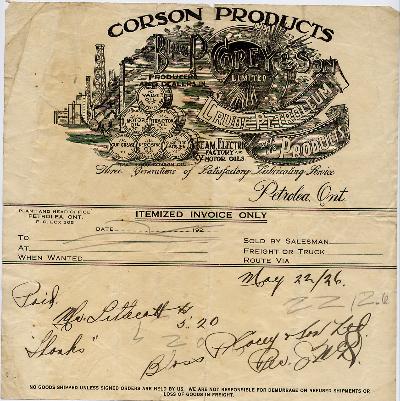 CORSON PRODUCTS
Bloss P. COREY & SON
LIMITED
PRODUCERS
CRUDE PETROLEUM
AND ITS PRODUCTS
STEAM, ELECTRIC
FACTORY
MOTOR OILS
Three Generations of Satisfactory Lubricating Service
Petrolea, Ont
PLANT AND HEAD OFFICE
PETROLEA, ONT.
P. O. BOX 305
ITEMIZED INVOICE ONLY
DATE 192
TO
AT
WHEN WANTED
SOLD BY SALESMAN
FREIGHT OR TRUCK
ROUTE VIA
May 22/26.
Paid.
5.20
Thanks
Bloss P Corey & Son Ltd.
Per.
NO GOODS SHIPPED UNLESS SIGNED ORDERS ARE HELD BY US. WE ARE NOT RESPONSIBLE FOR DEMURRAGE ON REFUSED SHIPMENTS OR
LOSS OF GOODS IN FREIGHT.